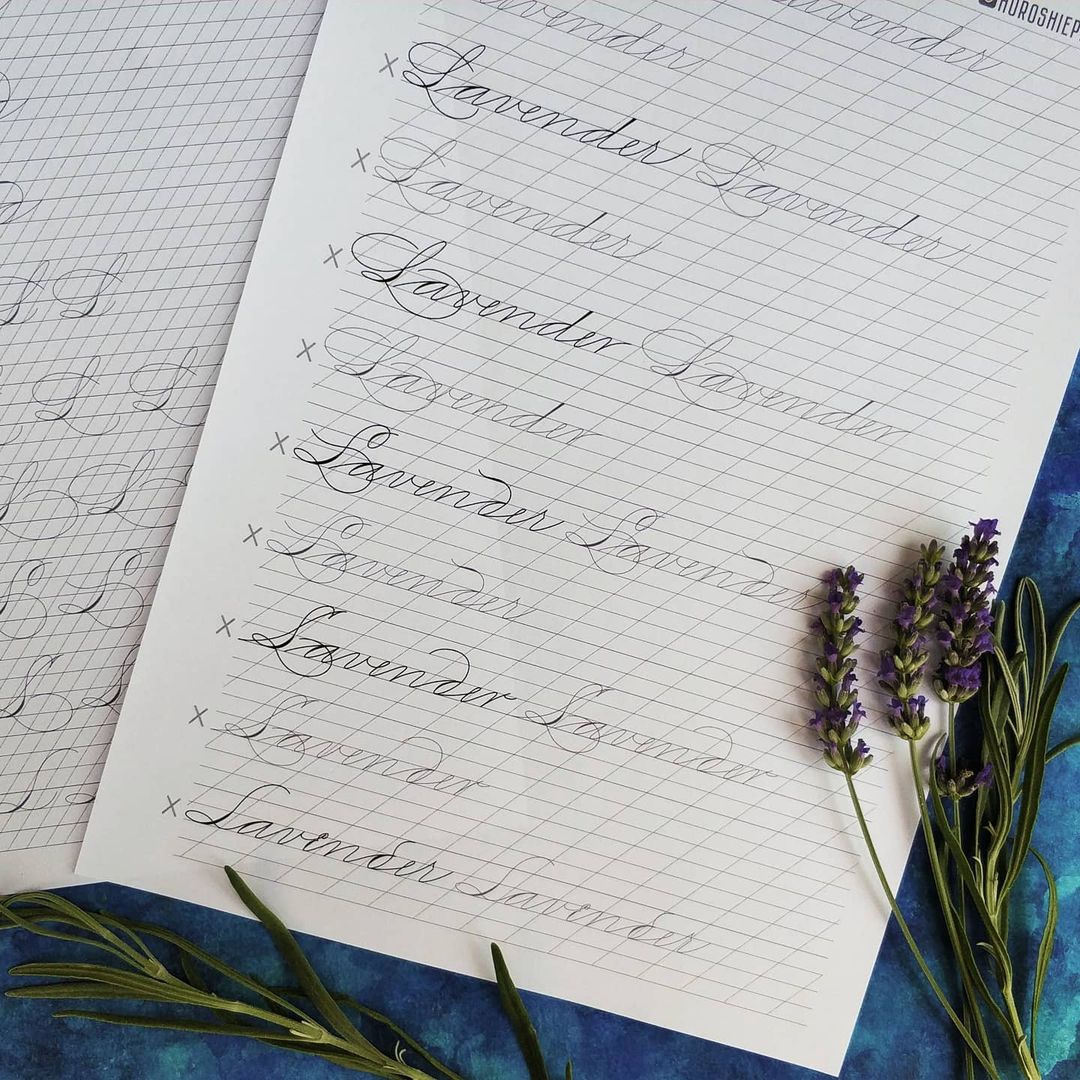 avender avender
x Lavender Lavender
x Lavender
x Lavender Lavender
x Lavender
x Lavender Lavender
x Lavender
x Lavender Lavender
x Lavender
x Lavender Lavender